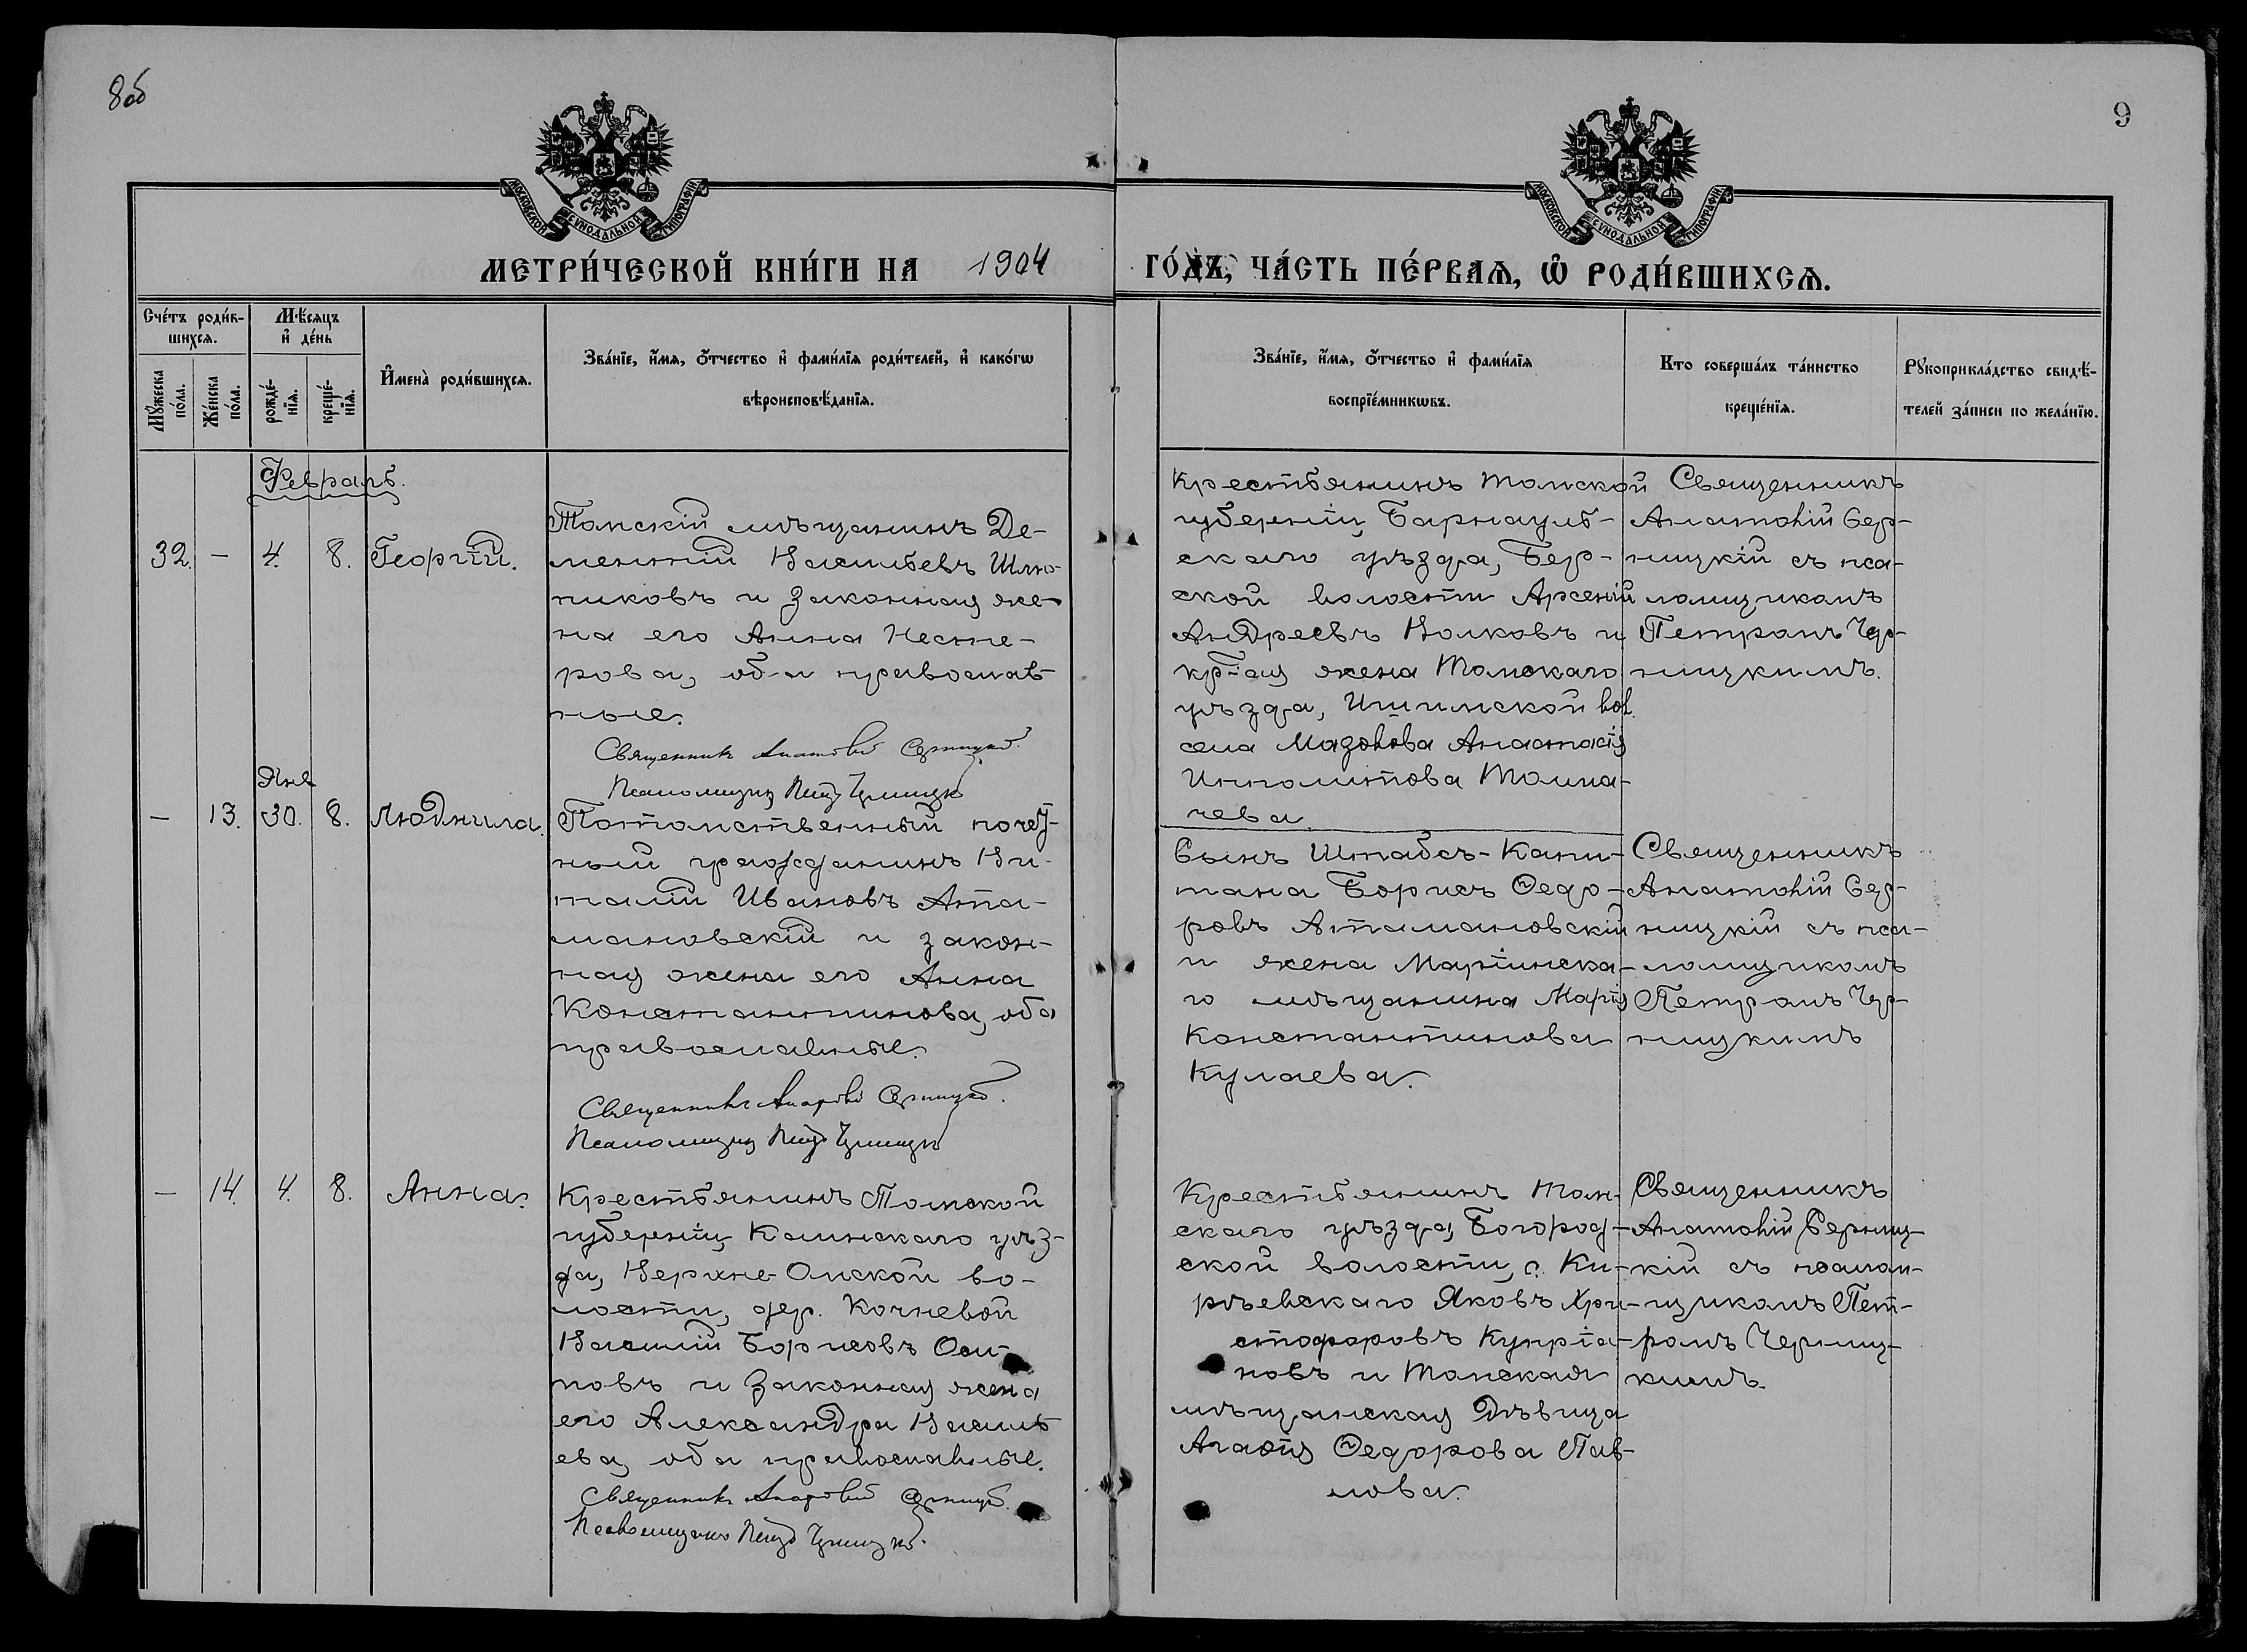 8об
9
МОСКОВСКОЙ СѴНОДАЛЬНОЙ ТИПОГРАФІИ
МОСКОВСКОЙ СѴНОДАЛЬНОЙ ТИПОГРАФІИ
МЕТРИ́ЧЕСКОЙ КНИ́ГИ НА 1904
ГО́ДЪ, ЧА́СТЬ ПЕ́РВАѦ, Ѡ҆ РОДИ́ВШИХСѦ.
Сче́тъ роди́в-
шихсѧ.
Мѣ́сѧцъ
и҆ де́нь
Мꙋ́жеска
по́ла.
Же́нска
по́ла.
рожде́-
нїѧ.
креще́-
нїѧ.
И҆мена̀ роди́вшихсѧ.
Зва́нїе, и҆́мѧ, ѻ҆́тчество и҆ фами́лїѧ роди́телей, и҆ како́гѡ
вѣроисповѣ́данїѧ.
Зва́нїе, и҆́мѧ, ѻ҆́тчество и҆ фами́лїѧ
воспрїе́мникѡвъ.
Кто соверша́лъ та́инство
креще́нїѧ.
Рꙋкоприкла́дство свидѣ́-
телей за́писи по жела́нїю.
Февраль.
32. — 4. 8. Георгій.
Томскій мѣщанинъ Де-
ментій Васильевъ Шлю-
пиковъ и законная же-
на его Анна Несте-
рова, оба православ-
ные.
Священникъ Анатолій Серницкій.
Псаломщикъ Петръ Черницкій
Крестьянинъ Томской
губерніи, Барнауль-
скаго уѣзда, Бер-
ской волости Арсеній
Андреевъ Волковъ и
кр-ая жена Томскаго
уѣзда, Ишимской вол.
села Мазолова Анастасія
Ипполитова Толма-
чева.
Священникъ
Анатолій Сер-
ницкій съ пса-
ломщикомъ
Петромъ Чер-
ницкимъ.
Янв
— 13. 30. 8. Людмила.
Потомственный почет-
ный гражданинъ Ви-
талій Ивановъ Ата-
мановскій и закон-
ная жена его Анна
Константинова, оба
православные.
Священникъ Анатолій Серницкій.
Псаломщикъ Петръ Черницкій
Сынъ Штабсъ-Капи-
тана Борисъ Ѳедо-
ровъ Атамановскій
и жена Маріинска-
го мѣщанина Марія
Константинова
Кулаева.
Священникъ
Анатолій Сер-
ницкій съ пса-
ломщикомъ
Петромъ Чер-
ницкимъ
— 14. 4. 8. Анна.
Крестьянинъ Томской
губерніи, Каинскаго уѣз-
да, Верхне-Омской во-
лости, дер. Кочневой
Василій Борисовъ Оси-
повъ и законная жена
его Александра Василь-
ева, оба православные.
Священникъ Анатолій Серницкій.
Псаломщикъ Петръ Черницкій.
Крестьянинъ Том-
скаго уѣзда, Богород-
ской волости, с. Ки-
рѣевскаго Яковъ Хри-
стофоровъ Купріа-
новъ и Томская
мѣщанская дѣвица
Агаѳія Ѳедорова Пав-
лова.
Священникъ
Анатолій Серниц-
кій съ псалом-
щикомъ Пет-
ромъ Черниц-
кимъ.